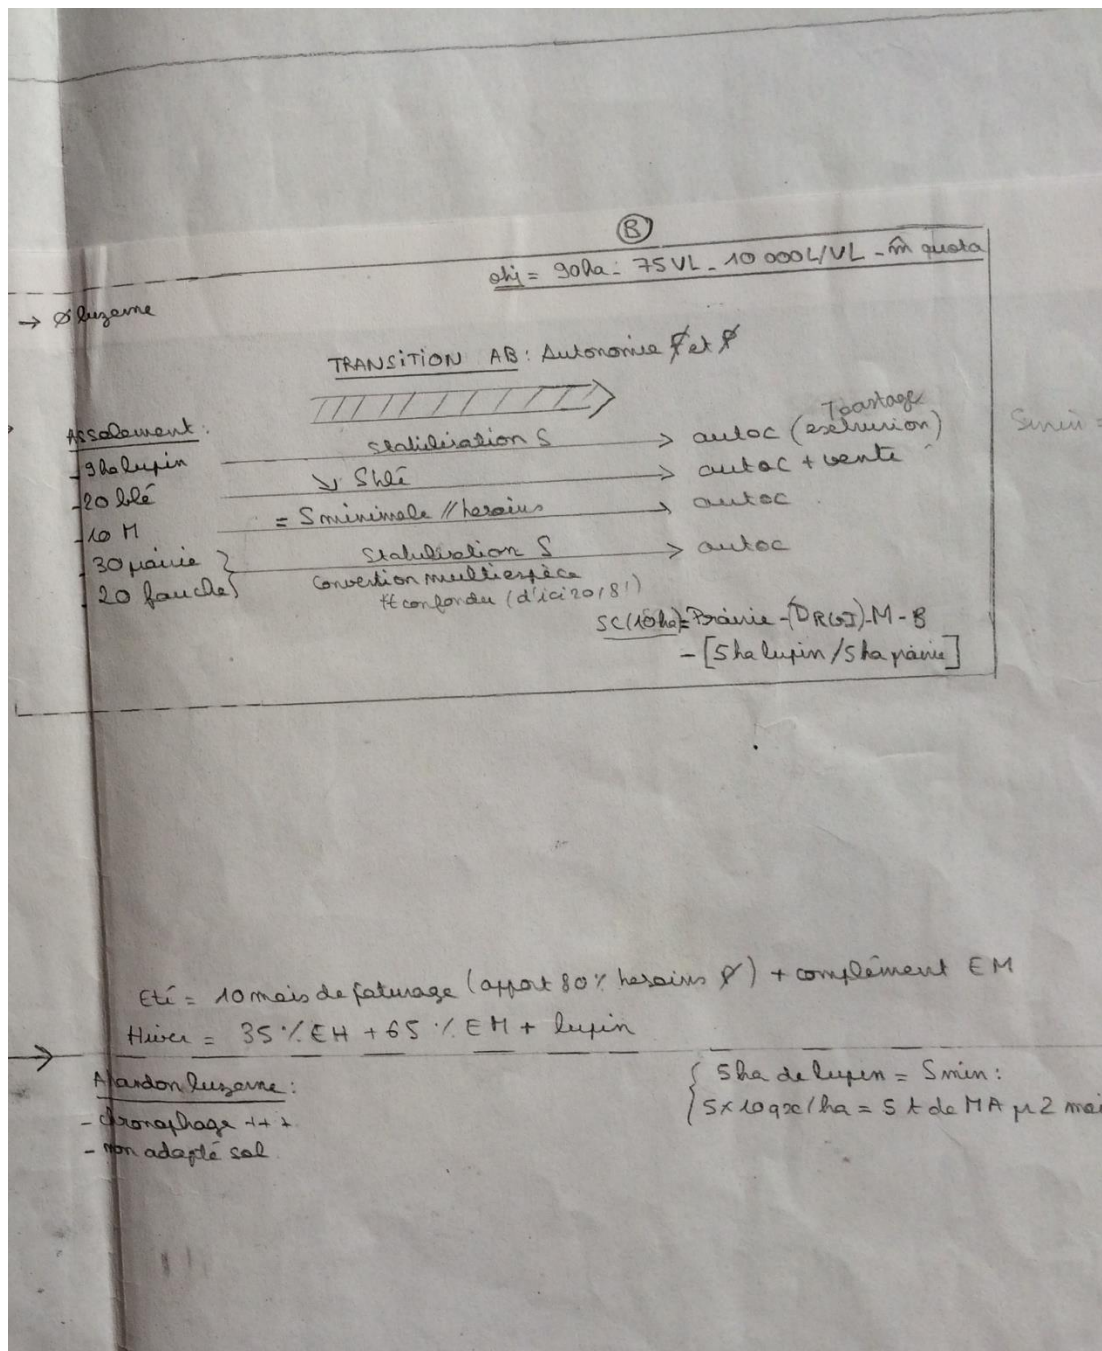 B
obj = 90ha = 75 VL - 10 000L/VL - m̂ quota
→ Ø luzerne
TRANSITION AB : Autonomie et
Assolement :
- 9 ha lupin stabilisation S → autoc (extrusion) Toastage
- 20 blé ↘ S blé → autoc + vente
- 10 M = S minimale // besoins → autoc
- 30 prairie } Stabilisation S → autoc
- 20 fauche } Convertion multiespèce
tt confondu (d'ici 2018!)
SC (10ha) = Prairie - (D RGI) - M - B
- [5 ha lupin / 5 ha prairie]
Smin =
Eté = 10 mois de paturage (apport 80% besoins) + complément EM
Hiver = 35 % EH + 65 % EM + lupin
Abandon luzerne :
- chronophage +++
- non adapté sol
{ 5 ha de lupin = Smin :
5 x 10 qx / ha = 5 t de MA pr 2 moi